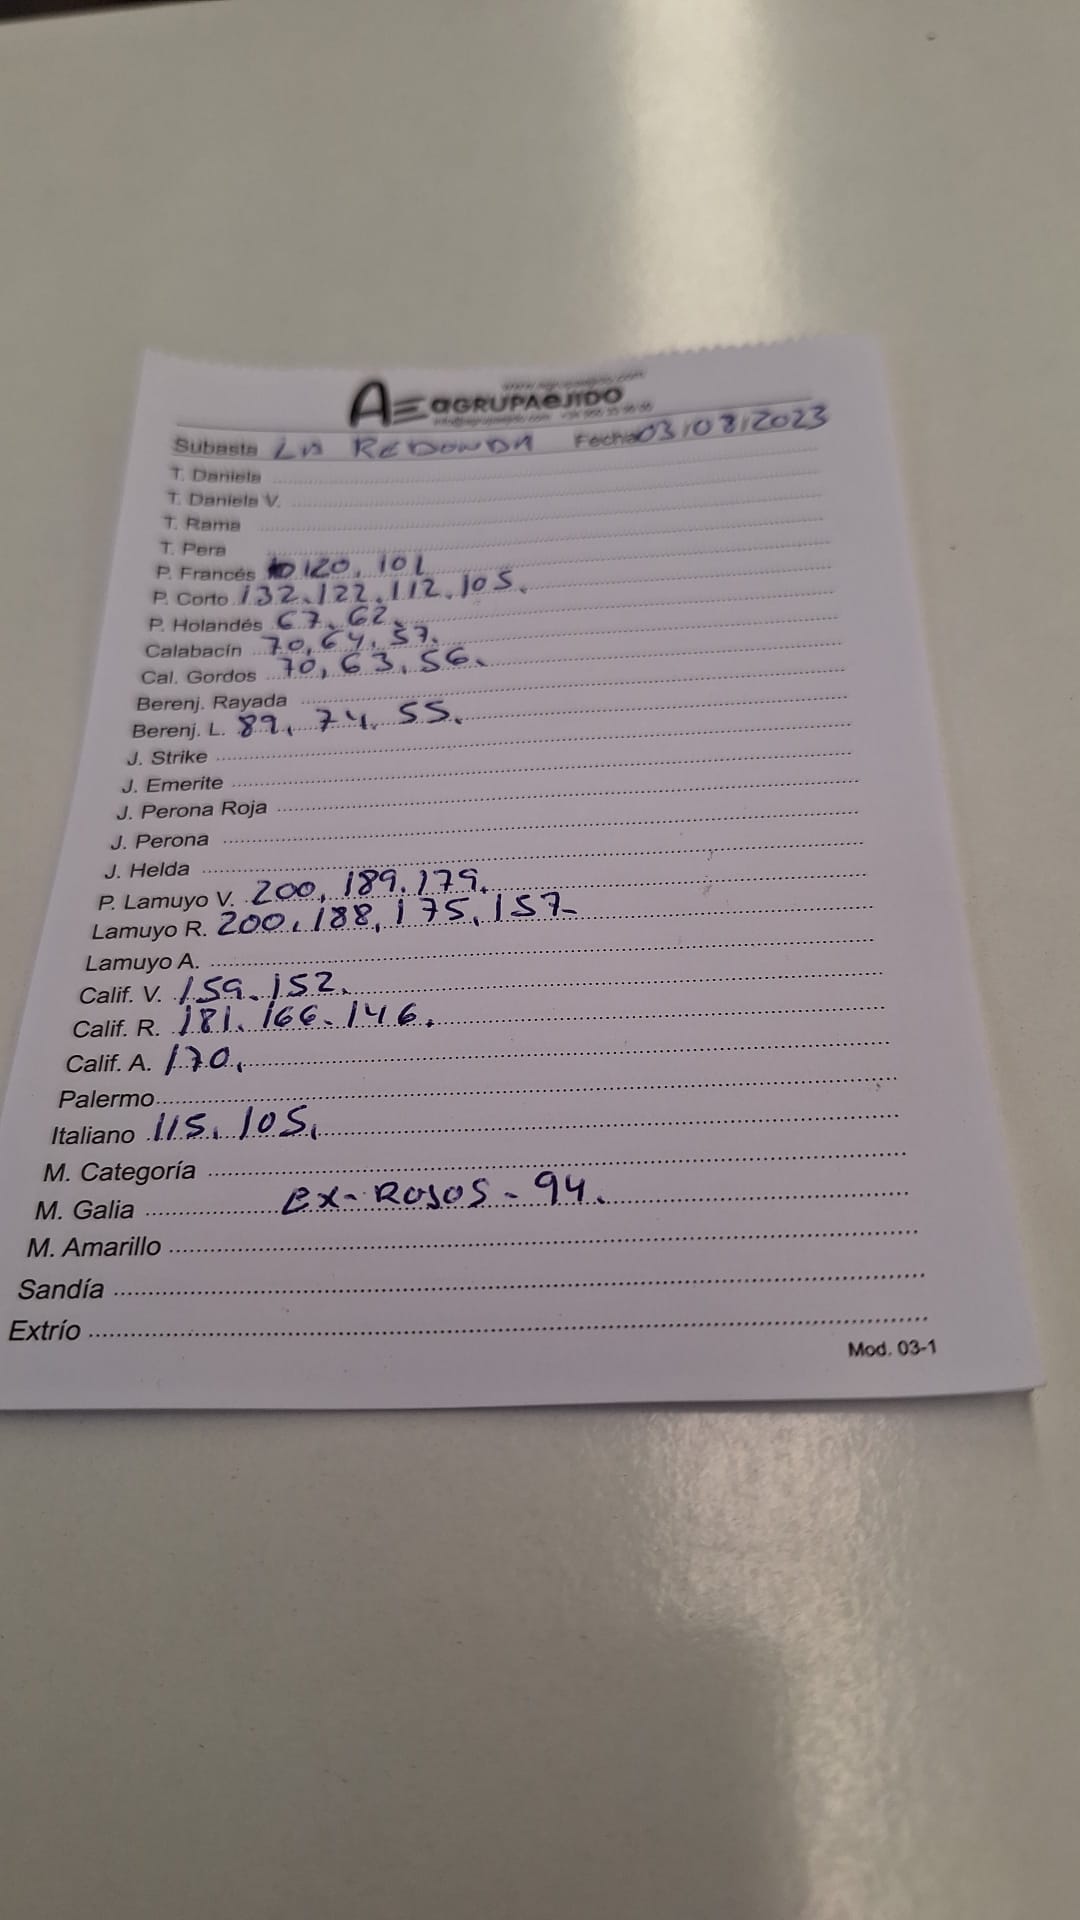 AE aGRUPAeJIDO
Subasta LA REDONDA Fecha 03/08/2023
T. Daniela
T. Daniela V.
T. Rama
T. Pera
P. Francés 120, 101
P. Corto 132, 122, 112, 105,
P. Holandés 67, 62,
Calabacín 70, 64, 57,
Cal. Gordos 70, 63, 56,
Berenj. Rayada
Berenj. L. 89, 74, 55,
J. Strike
J. Emerite
J. Perona Roja
J. Perona
J. Helda
P. Lamuyo V. 200, 189, 179,
Lamuyo R. 200, 188, 175, 157-
Lamuyo A.
Calif. V. 159, 152,
Calif. R. 181, 166, 146,
Calif. A. 170,
Palermo
Italiano 115, 105,
M. Categoría
M. Galia ex-ROJOS - 94,
M. Amarillo
Sandía
Extrío
Mod. 03-1